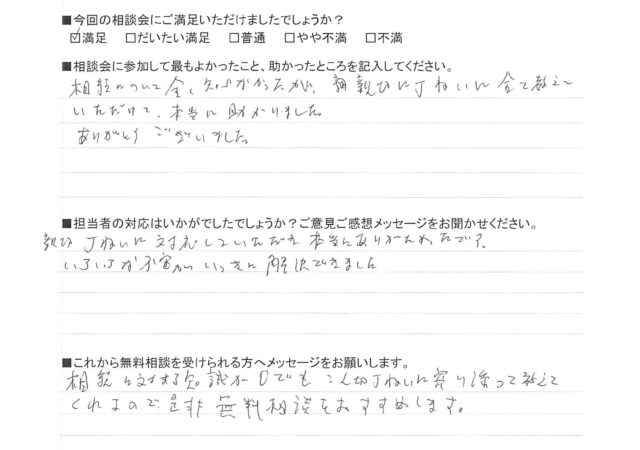 ■今回の相談会にご満足いただけましたでしょうか？
☑満足　□だいたい満足　□普通　□やや不満　□不満
■相談会に参加して最もよかったこと、助かったところを記入してください。
相続について全く知らなかったが、親切丁ねいに全て教えて
いただけて、本当に助かりました。
ありがとうございました。
■担当者の対応はいかがでしたでしょうか？ご意見ご感想メッセージをお聞かせください。
親切丁ねいに対応していただき本当にありがたかったです。
いろいろな不安がいっきに解決できました
■これから無料相談を受けられる方へメッセージをお願いします。
相続に対する知識が0でも丁ねいに寄り添って教えて
くれるので是非無料相談をおすすめします。